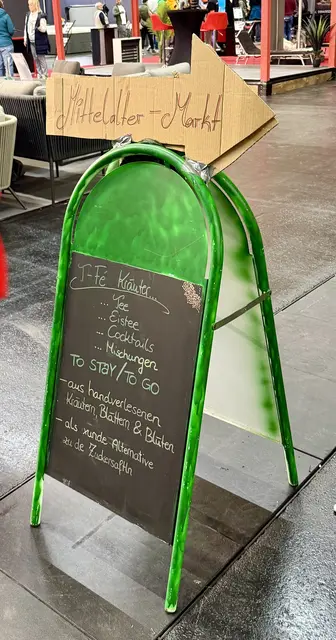 Mittelalter-Markt
T-Fé Kräuter...
... Tee
... Eistee
... Cocktails
... Mischungen
TO STAY/TO GO
- aus handverlesenen
Kräutern, Blätten & Blüten
- als xunde Alternative
zu de Zuckersaftln